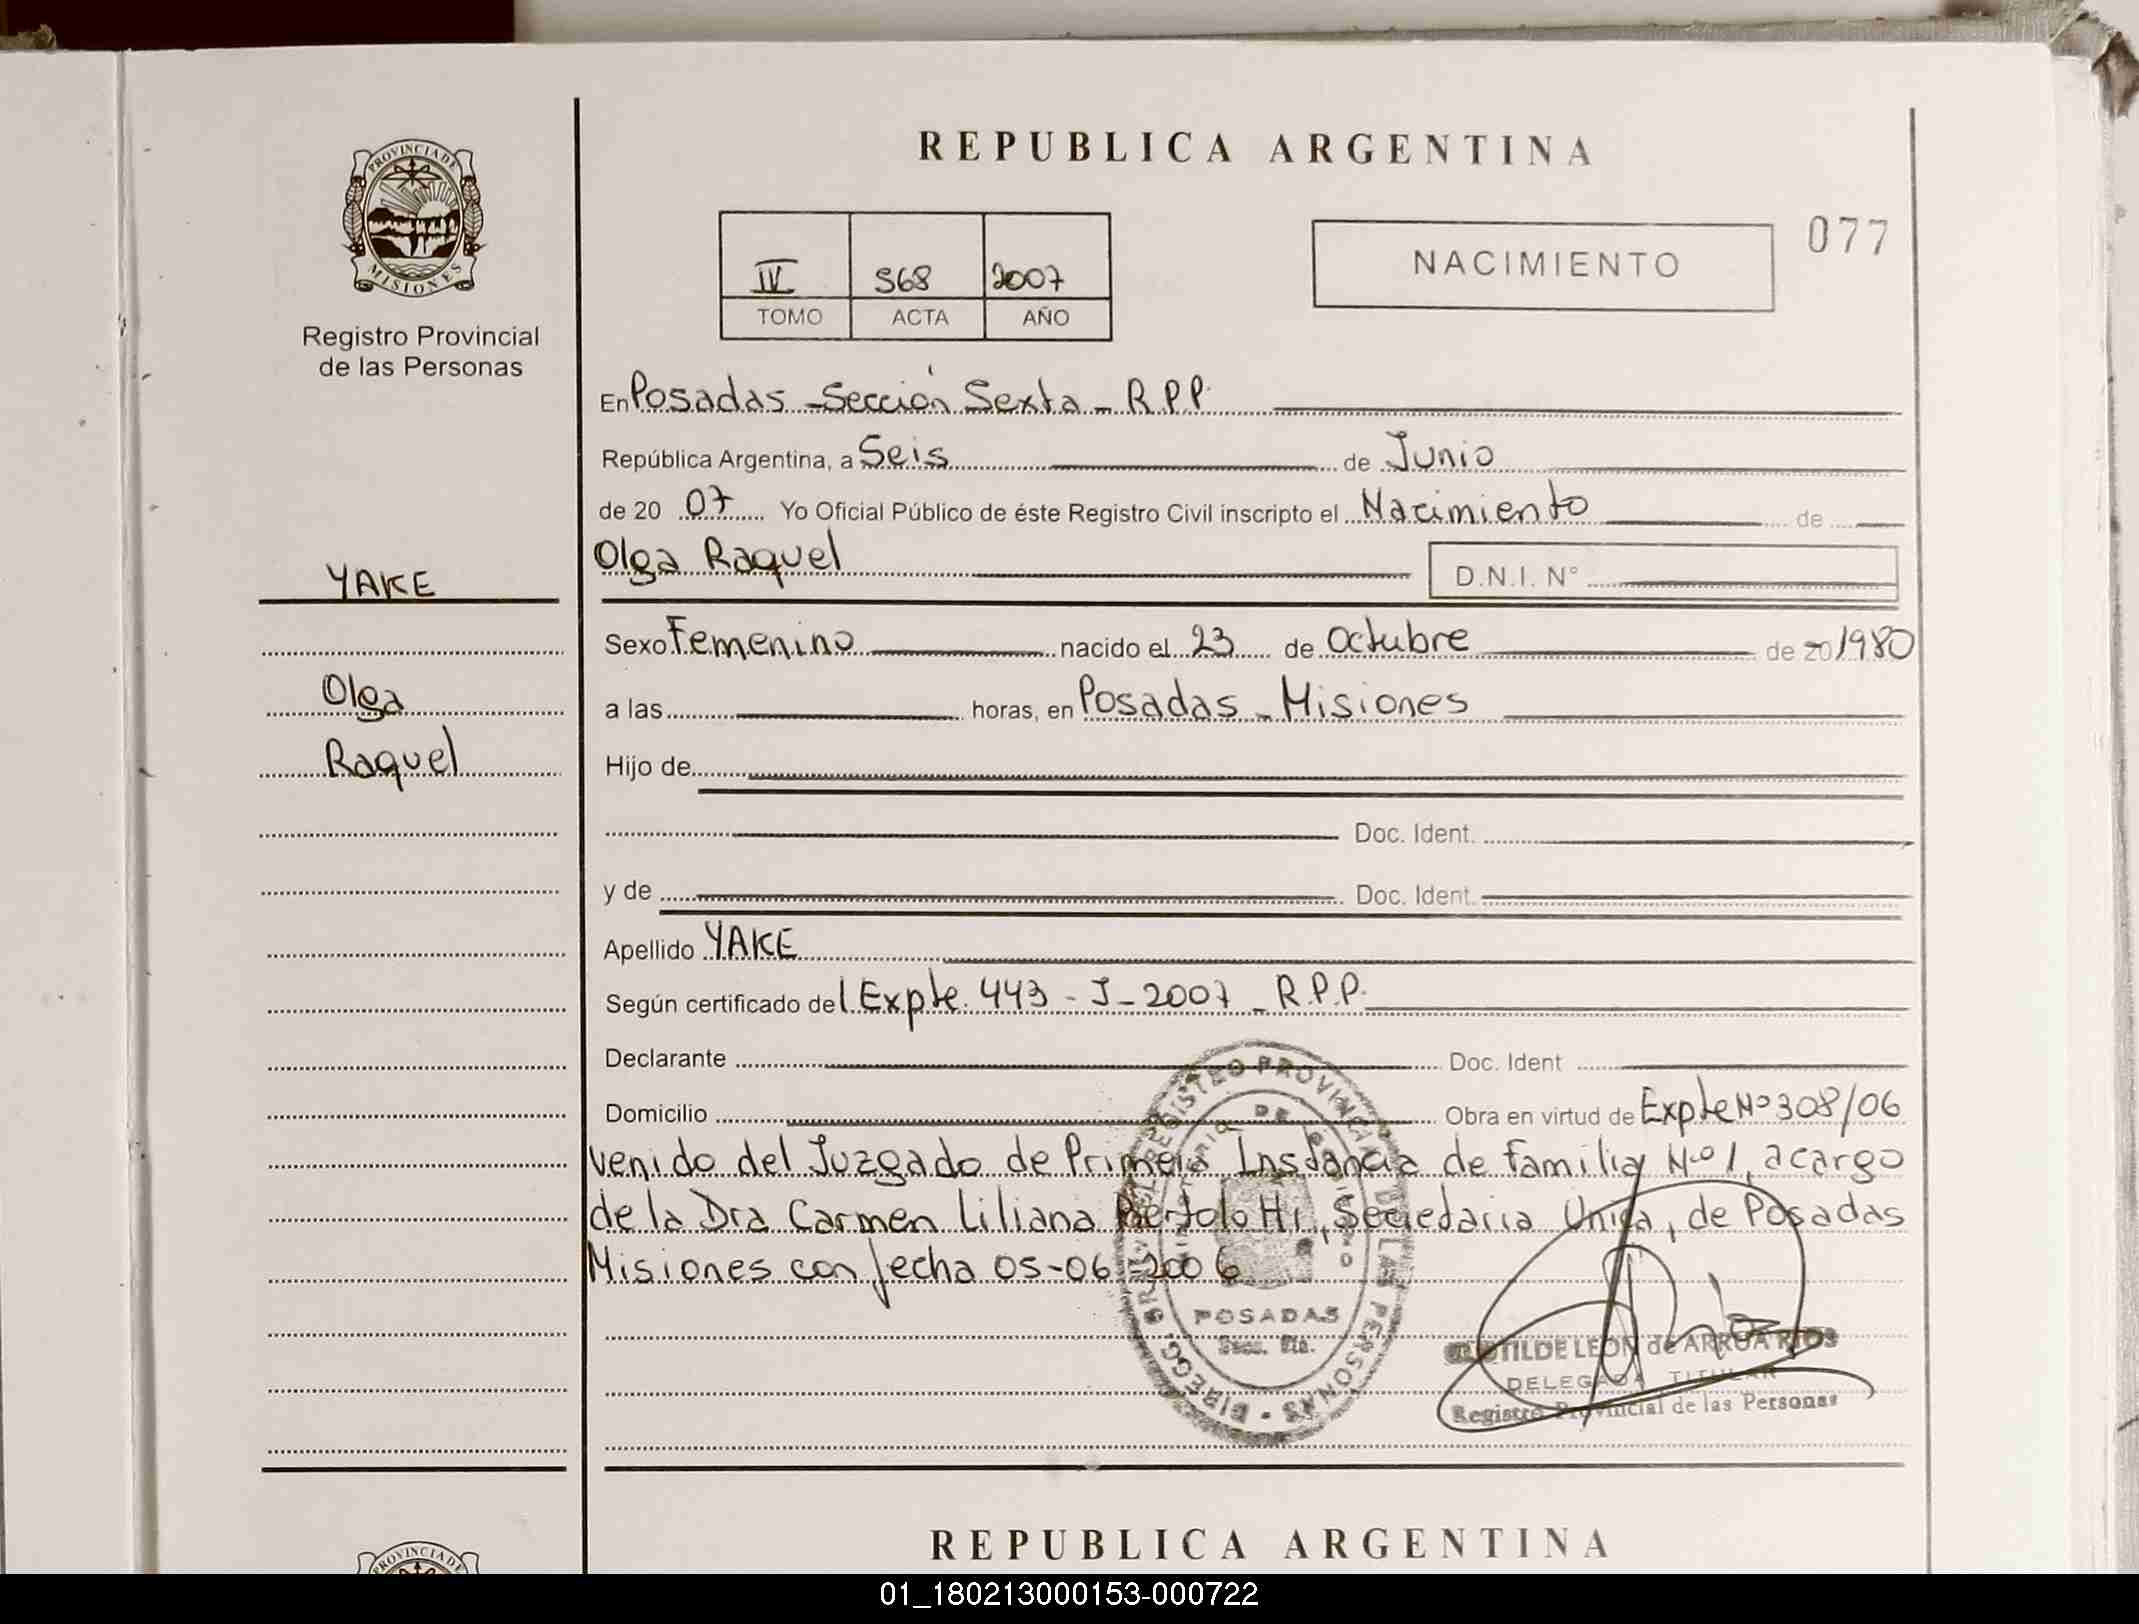 REPUBLICA ARGENTINA
PROVINCIA DE MISIONES
Registro Provincial
de las Personas
IV 568 2007
TOMO ACTA AÑO
NACIMIENTO
077
En Posadas - Sección Sexta - R.P.P.
República Argentina, a Seis de Junio
de 20 07 Yo Oficial Público de éste Registro Civil inscripto el Nacimiento de
Olga Raquel D.N.I. N°
YAKE
Olga
Raquel
Sexo Femenino nacido el 23 de Octubre de 20 1980
a las horas, en Posadas - Misiones
Hijo de
Doc. Ident.
y de Doc. Ident.
Apellido YAKE
Según certificado del Expte. 443 - J - 2007 - R.P.P.
Declarante Doc. Ident
Domicilio Obra en virtud de Expte Nº 308/06
venido del Juzgado de Primera Instancia de familia Nº 1, a cargo
de la Dra Carmen Liliana Secretaria Unica, de Posadas
Misiones con fecha 05-06-2006
REGISTRO PROVINCIAL DE LAS PERSONAS
MINISTERIO DE GOBIERNO
POSADAS
Secc. 6ta.
CLOTILDE LEON de ARRUA RIOS
DELEGADA TITULAR
Registro Provincial de las Personas
REPUBLICA ARGENTINA
PROVINCIA DE
01_180213000153-000722